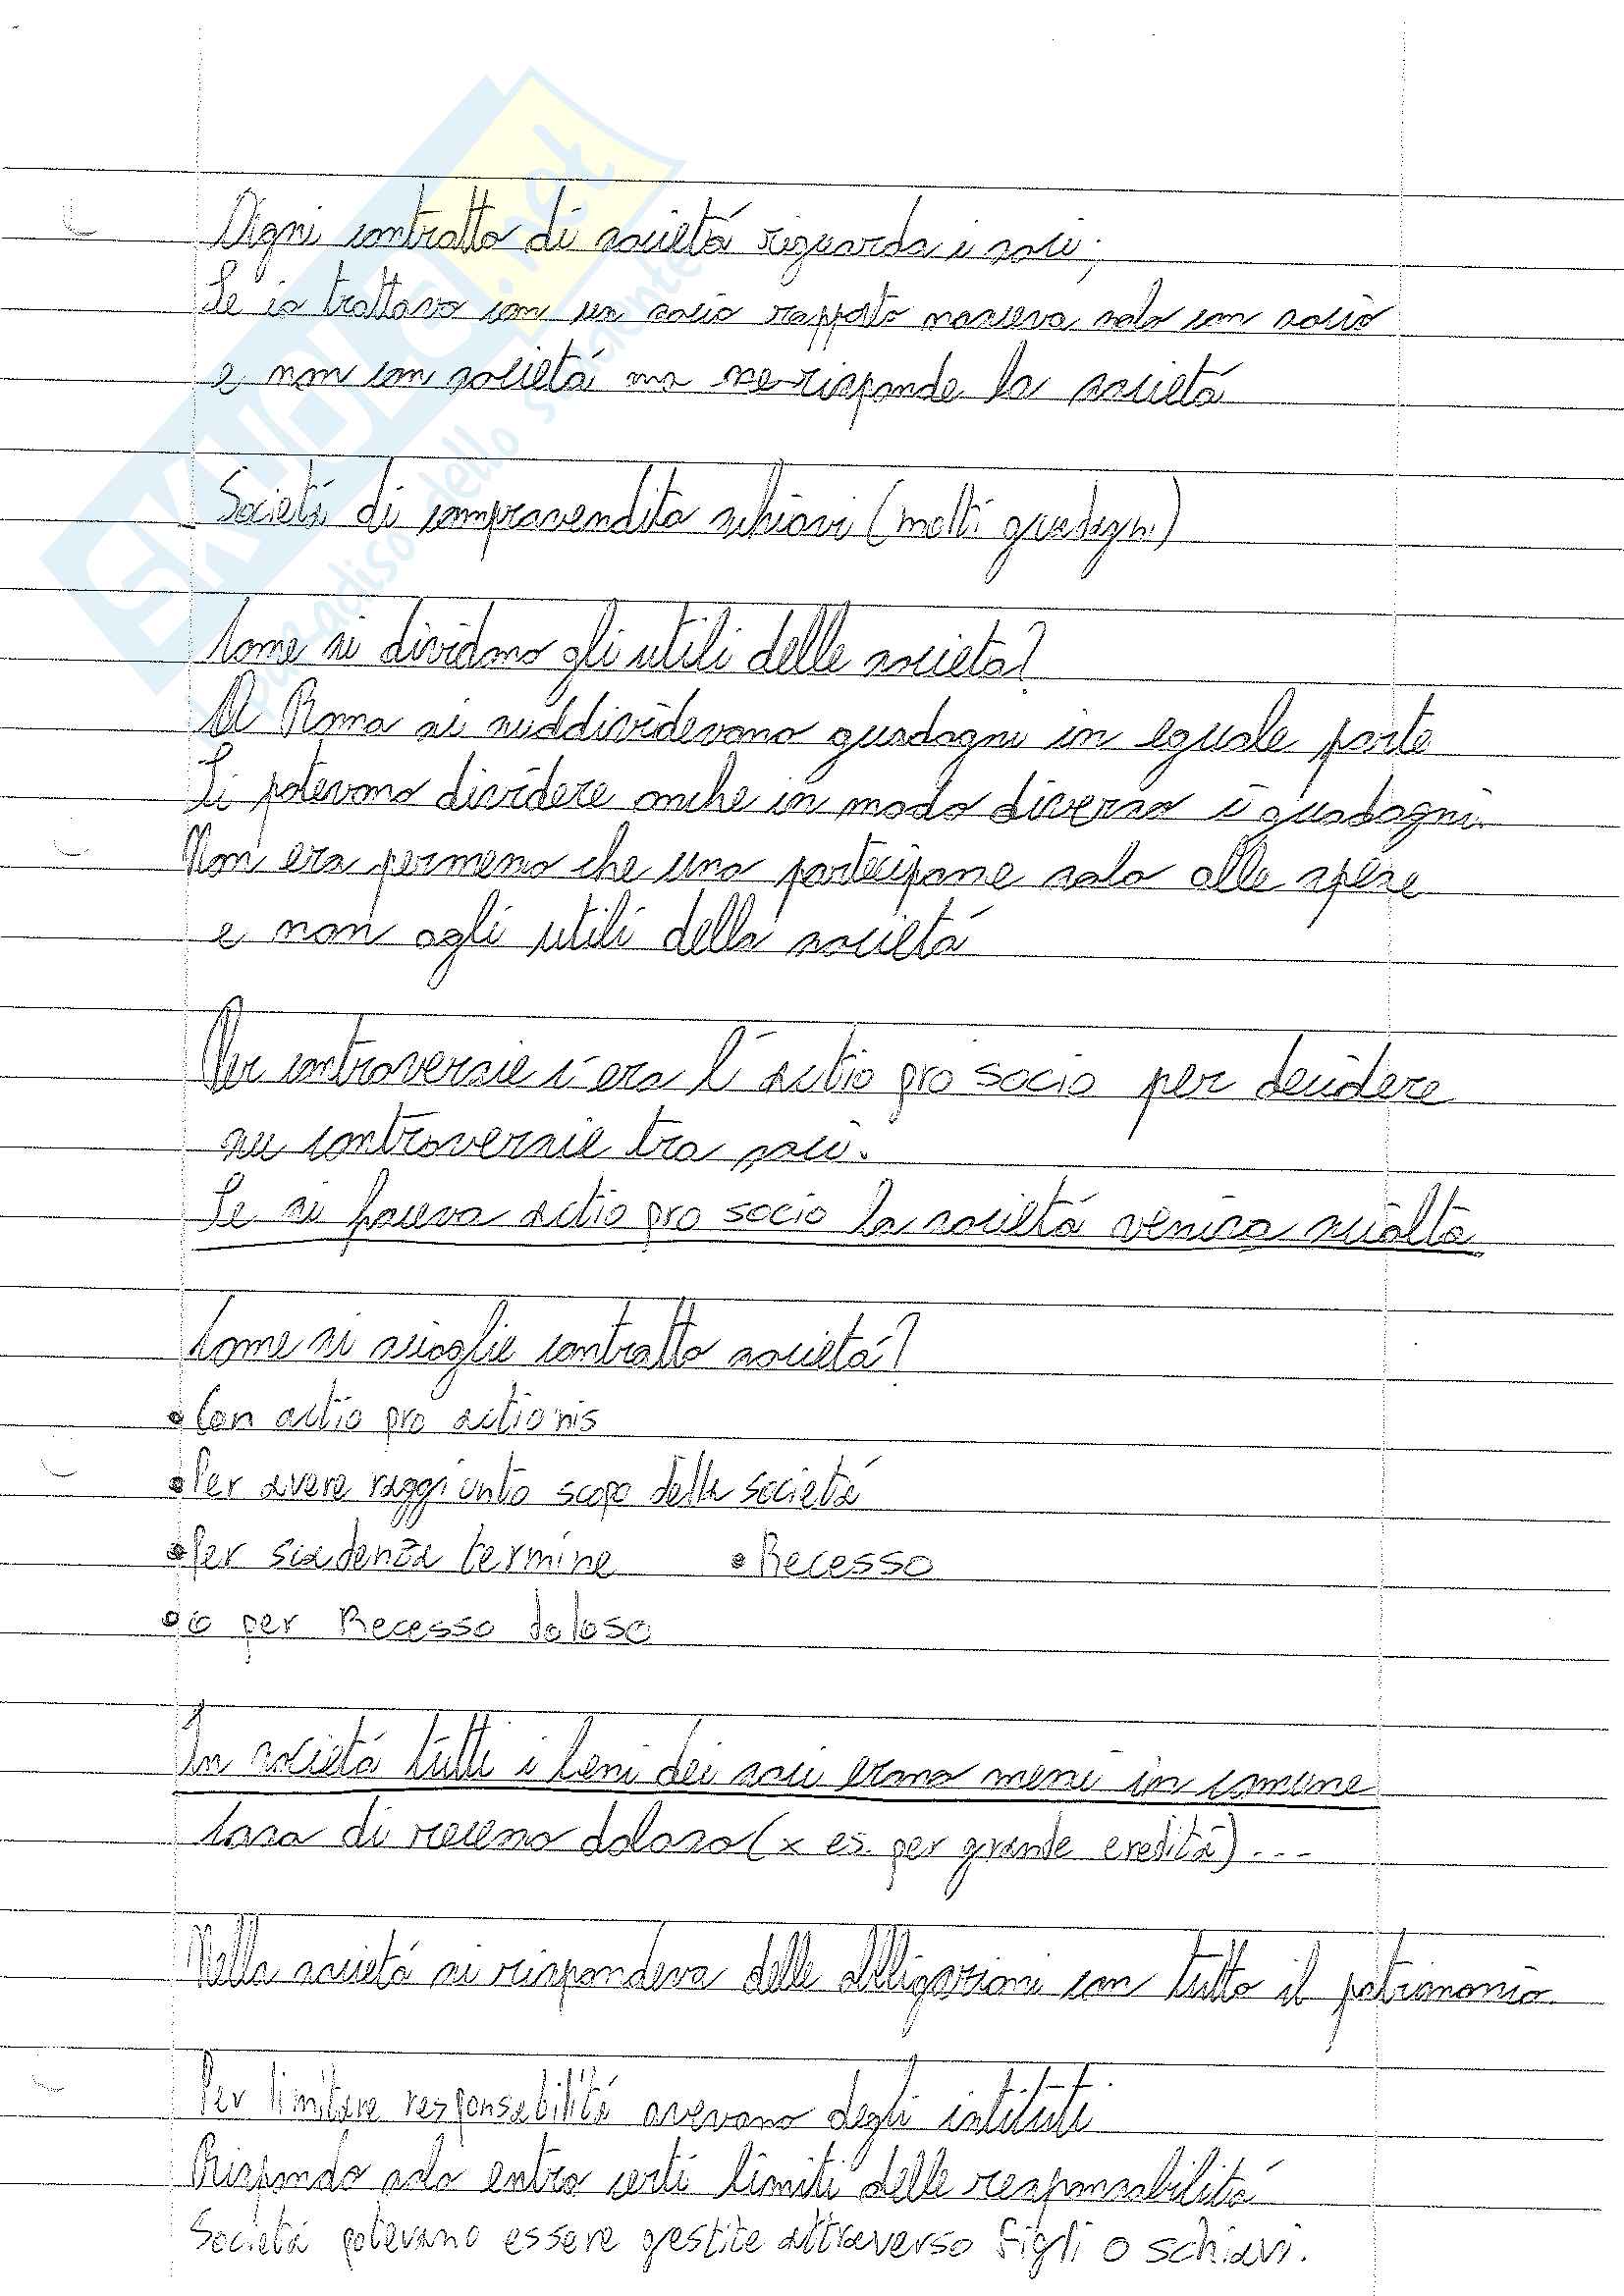 Ogni contratto di società riguarda i soci;
Se io trattavo con un socio rapporto nasceva solo con socio
e non con società ma ne risponde la società
Società di compravendita schiavi (molti guadagni)
Come si dividono gli utili delle società?
A Roma si suddividevano guadagni in eguale parte
Si potevano dividere anche in modo diverso i guadagni.
Non era permesso che uno partecipasse solo alle spese
e non agli utili della società
Per controversie c'era l'actio pro socio per decidere
su controversie tra soci.
Se si faceva actio pro socio la società veniva sciolta
Come si scioglie contratto società?
• Con actio pro actionis
• Per avere raggiunto scopo della società
• Per scadenza termine • Recesso
• o per Recesso doloso
In società tutti i beni dei soci erano messi in comune
Caso di recesso doloso (x es. per grande eredità)...
Nella società si rispondeva delle obbligazioni con tutto il patrimonio.
Per limitare responsabilità avevano degli istituti
Rispondo solo entro certi limiti delle responsabilità
Società potevano essere gestite attraverso figli o schiavi.
SKUOLA.net
il paradiso dello studente